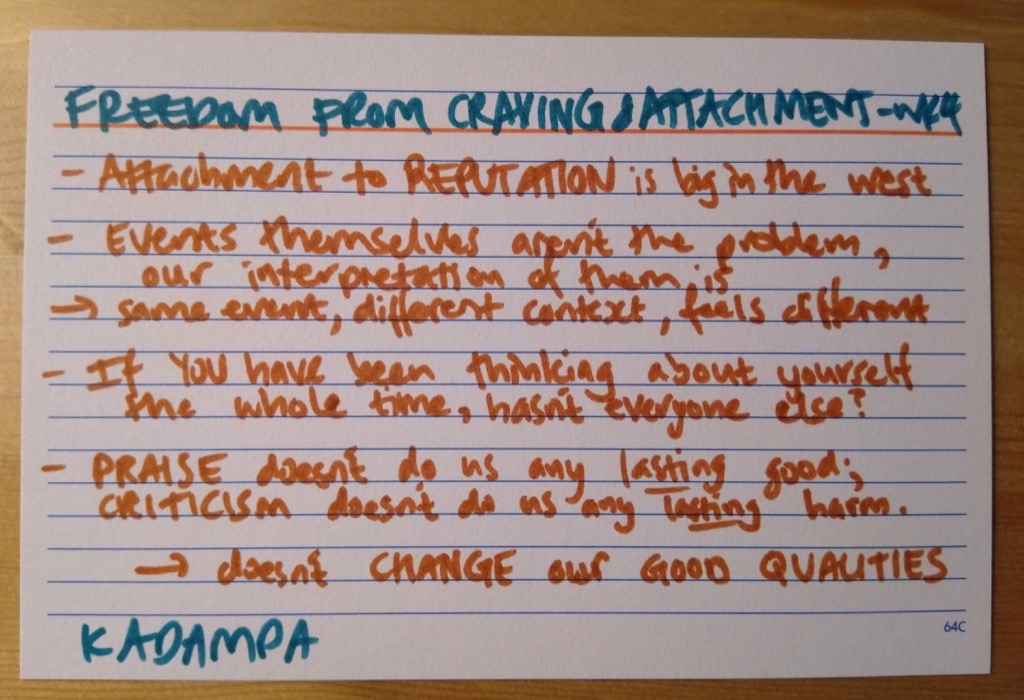 FREEDOM FROM CRAVING & ATTACHMENT - WK4
- Attachment to REPUTATION is big in the west
- Events themselves aren't the problem,
our interpretation of them is
→ same event, different context, feels different
- If YOU have been thinking about yourself
the whole time, hasn't everyone else?
- PRAISE doesn't do us any lasting good;
CRITICISM doesn't do us any lasting harm.
→ doesn't CHANGE our GOOD QUALITIES
64C
KADAMPA